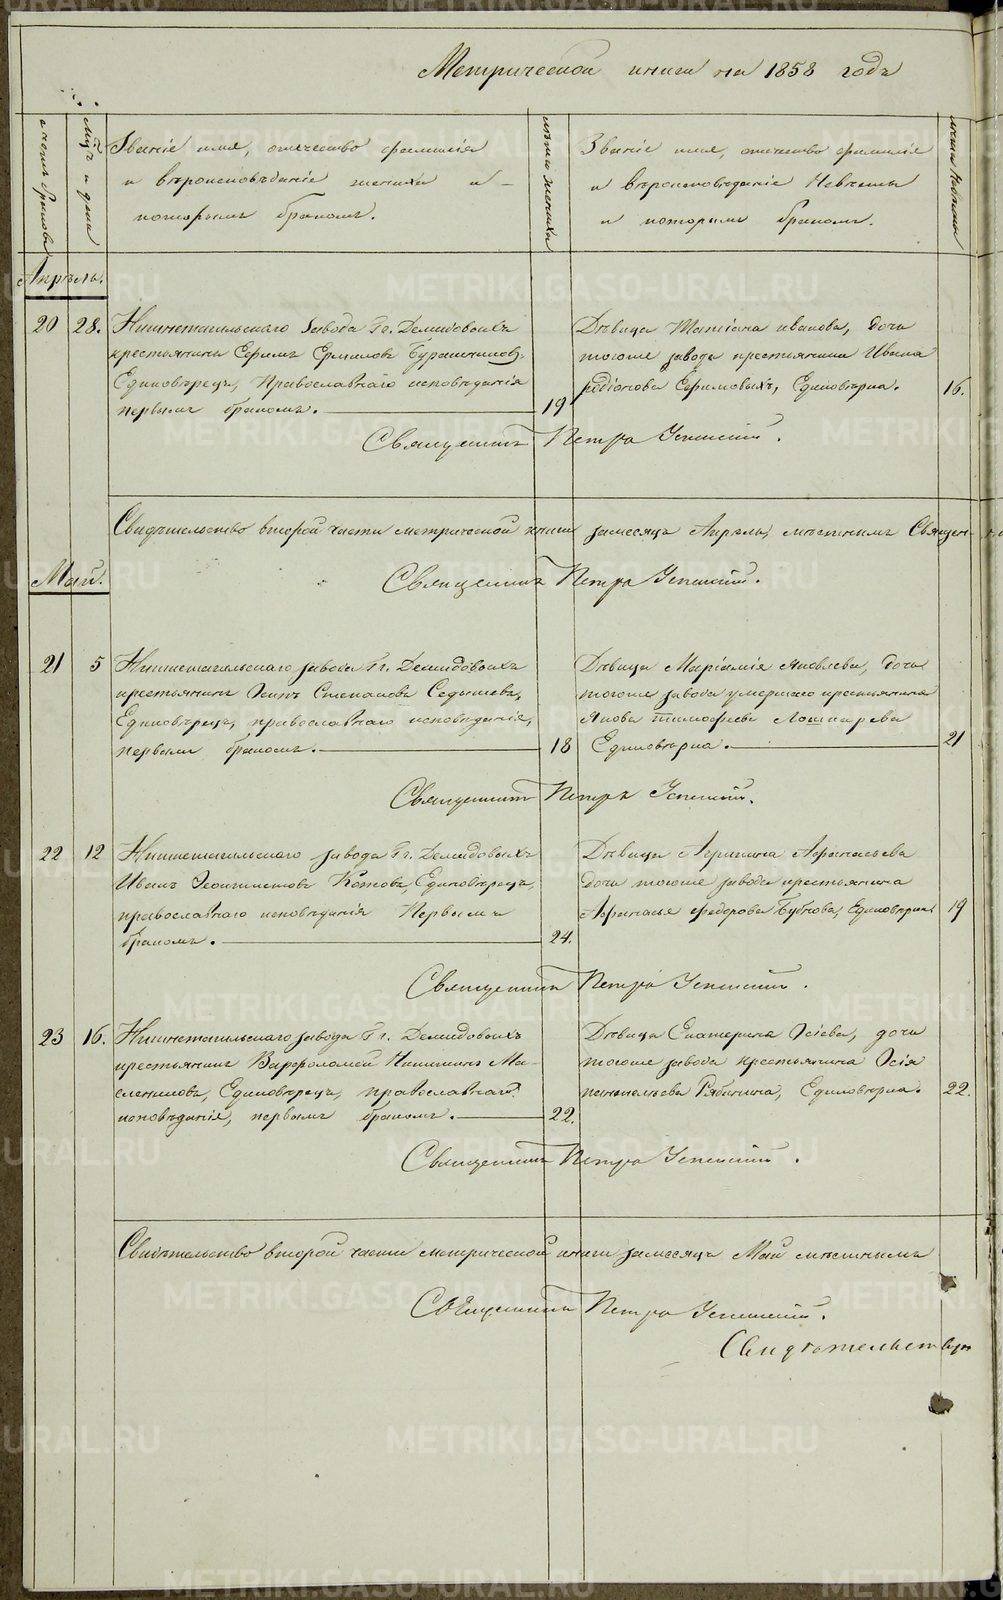 Метрической книги на 1858 годъ
счетъ браковъ
мѣс. и дни
Званіе имя, отечество фамилія
и вѣроисповѣданіе жениха и
которымъ бракомъ.
лѣта жениха
Званіе имя, отечество фамилія
и вѣроисповѣданіе Невѣсты
и которымъ бракомъ.
лѣта Невѣсты
Апрѣль.
20 28. Нижнетагильскаго завода Гг. Демидовыхъ
крестьянинъ Ефимъ Ермиловъ
Единовѣрецъ, Православнаго исповѣданія
первымъ бракомъ. 19
Дѣвица Татіана иванова, дочь
тогоже завода крестьянина Ивана
Родіонова Ефимовыхъ, Единовѣрка. 16.
Священникъ Петръ Успенскій.
Свидѣтельство второй части метрической книги замесяцъ Апрѣль, мѣстнымъ Священ
Май.
Священникъ Петръ Успенскій.
21 5 Нижнетагильскаго завода Гг. Демидовыхъ
крестьянинъ Осипъ Степановъ Седышевъ,
Единовѣрецъ, православнаго исповѣданія,
первымъ бракомъ. 18
Дѣвица Маріамія Яковлева, дочь
тогоже завода умершаго крестьянина
Якова тимофеева Лошкарева
Единовѣрка. 21
Священникъ Петръ Успенскій.
22 12 Нижнетагильскаго завода Гг. Демидовыхъ
Иванъ Феоктистовъ Котовъ, Единовѣрецъ,
православнаго исповѣданія Первымъ
бракомъ. 24.
Дѣвица Агрипина Афанасьева
дочь тогоже завода крестьянина
Афанасья федорова Бубнова, Единовѣрка 19
Священникъ Петръ Успенскій.
23 16. Нижнетагильскаго завода Гг. Демидовыхъ
крестьянинъ Варфоломей Никитинъ Ма-
слениковъ, Единовѣрецъ, православнаго
исповѣданія, первымъ бракомъ. 22.
Дѣвица Екатерина Осіева, дочь
тогоже завода крестьянина Осія
Рябинина, Единовѣрка. 22.
Священникъ Петръ Успенскій.
Свидѣтельство второй части метрической книги замесяцъ Май мѣстнымъ
Священникъ Петръ Успенскій.
METRIKI.GASO-URAL.RU